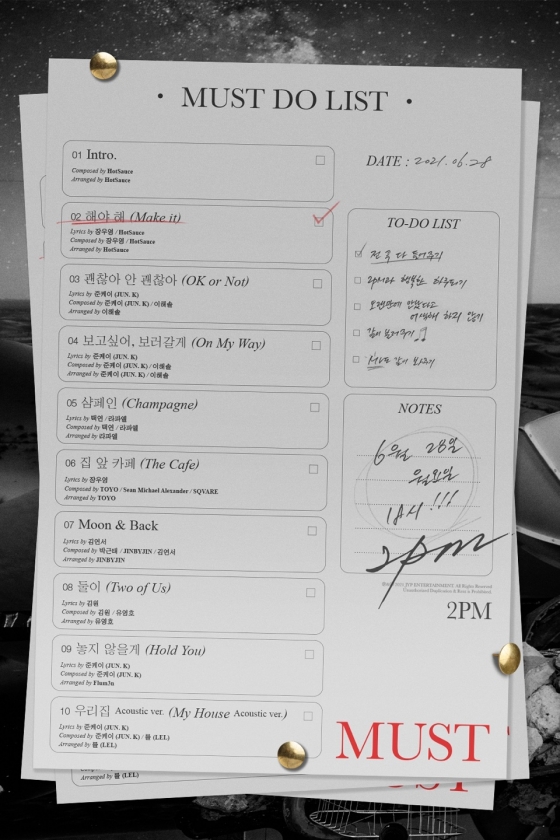 • MUST DO LIST •
01 Intro.
Composed by HotSauce
Arranged by HotSauce
02 해야 해 (Make it)
Lyrics by 장우영 / HotSauce
Composed by 장우영 / HotSauce
Arranged by HotSauce
03 괜찮아 안 괜찮아 (OK or Not)
Lyrics by 준케이 (JUN. K)
Composed by 준케이 (JUN. K) / 이해솔
Arranged by 이해솔
04 보고싶어, 보러갈게 (On My Way)
Lyrics by 준케이 (JUN. K)
Composed by 준케이 (JUN. K) / 이해솔
Arranged by 준케이 (JUN. K) / 이해솔
05 샴페인 (Champagne)
Lyrics by 택연 / 라파엘
Composed by 택연 / 라파엘
Arranged by 라파엘
06 집 앞 카페 (The Cafe)
Lyrics by 장우영
Composed by TOYO / Sean Michael Alexander / SQVARE
Arranged by TOYO
07 Moon & Back
Lyrics by 김연서
Composed by 박근태 / JINBYJIN / 김연서
Arranged by JINBYJIN
08 둘이 (Two of Us)
Lyrics by 김원
Composed by 김원 / 유영호
Arranged by 유영호
09 놓지 않을게 (Hold You)
Lyrics by 준케이 (JUN. K)
Composed by 준케이 (JUN. K)
Arranged by Flum3n
10 우리집 Acoustic ver. (My House Acoustic ver.)
Lyrics by 준케이 (JUN. K)
Composed by 준케이 (JUN. K) / 를 (LEL)
Arranged by 를 (LEL)
Arranged by 를 (LEL)
DATE : 2021. 06. 28
TO-DO LIST
전 곡 다 들어주기
행복한 하루되기
오랜만에 만났다고
어색해 하지 않기
같이 보내기
NOTES
6월 28일
월요일
18시 !!!
2pm
2PM
MUST